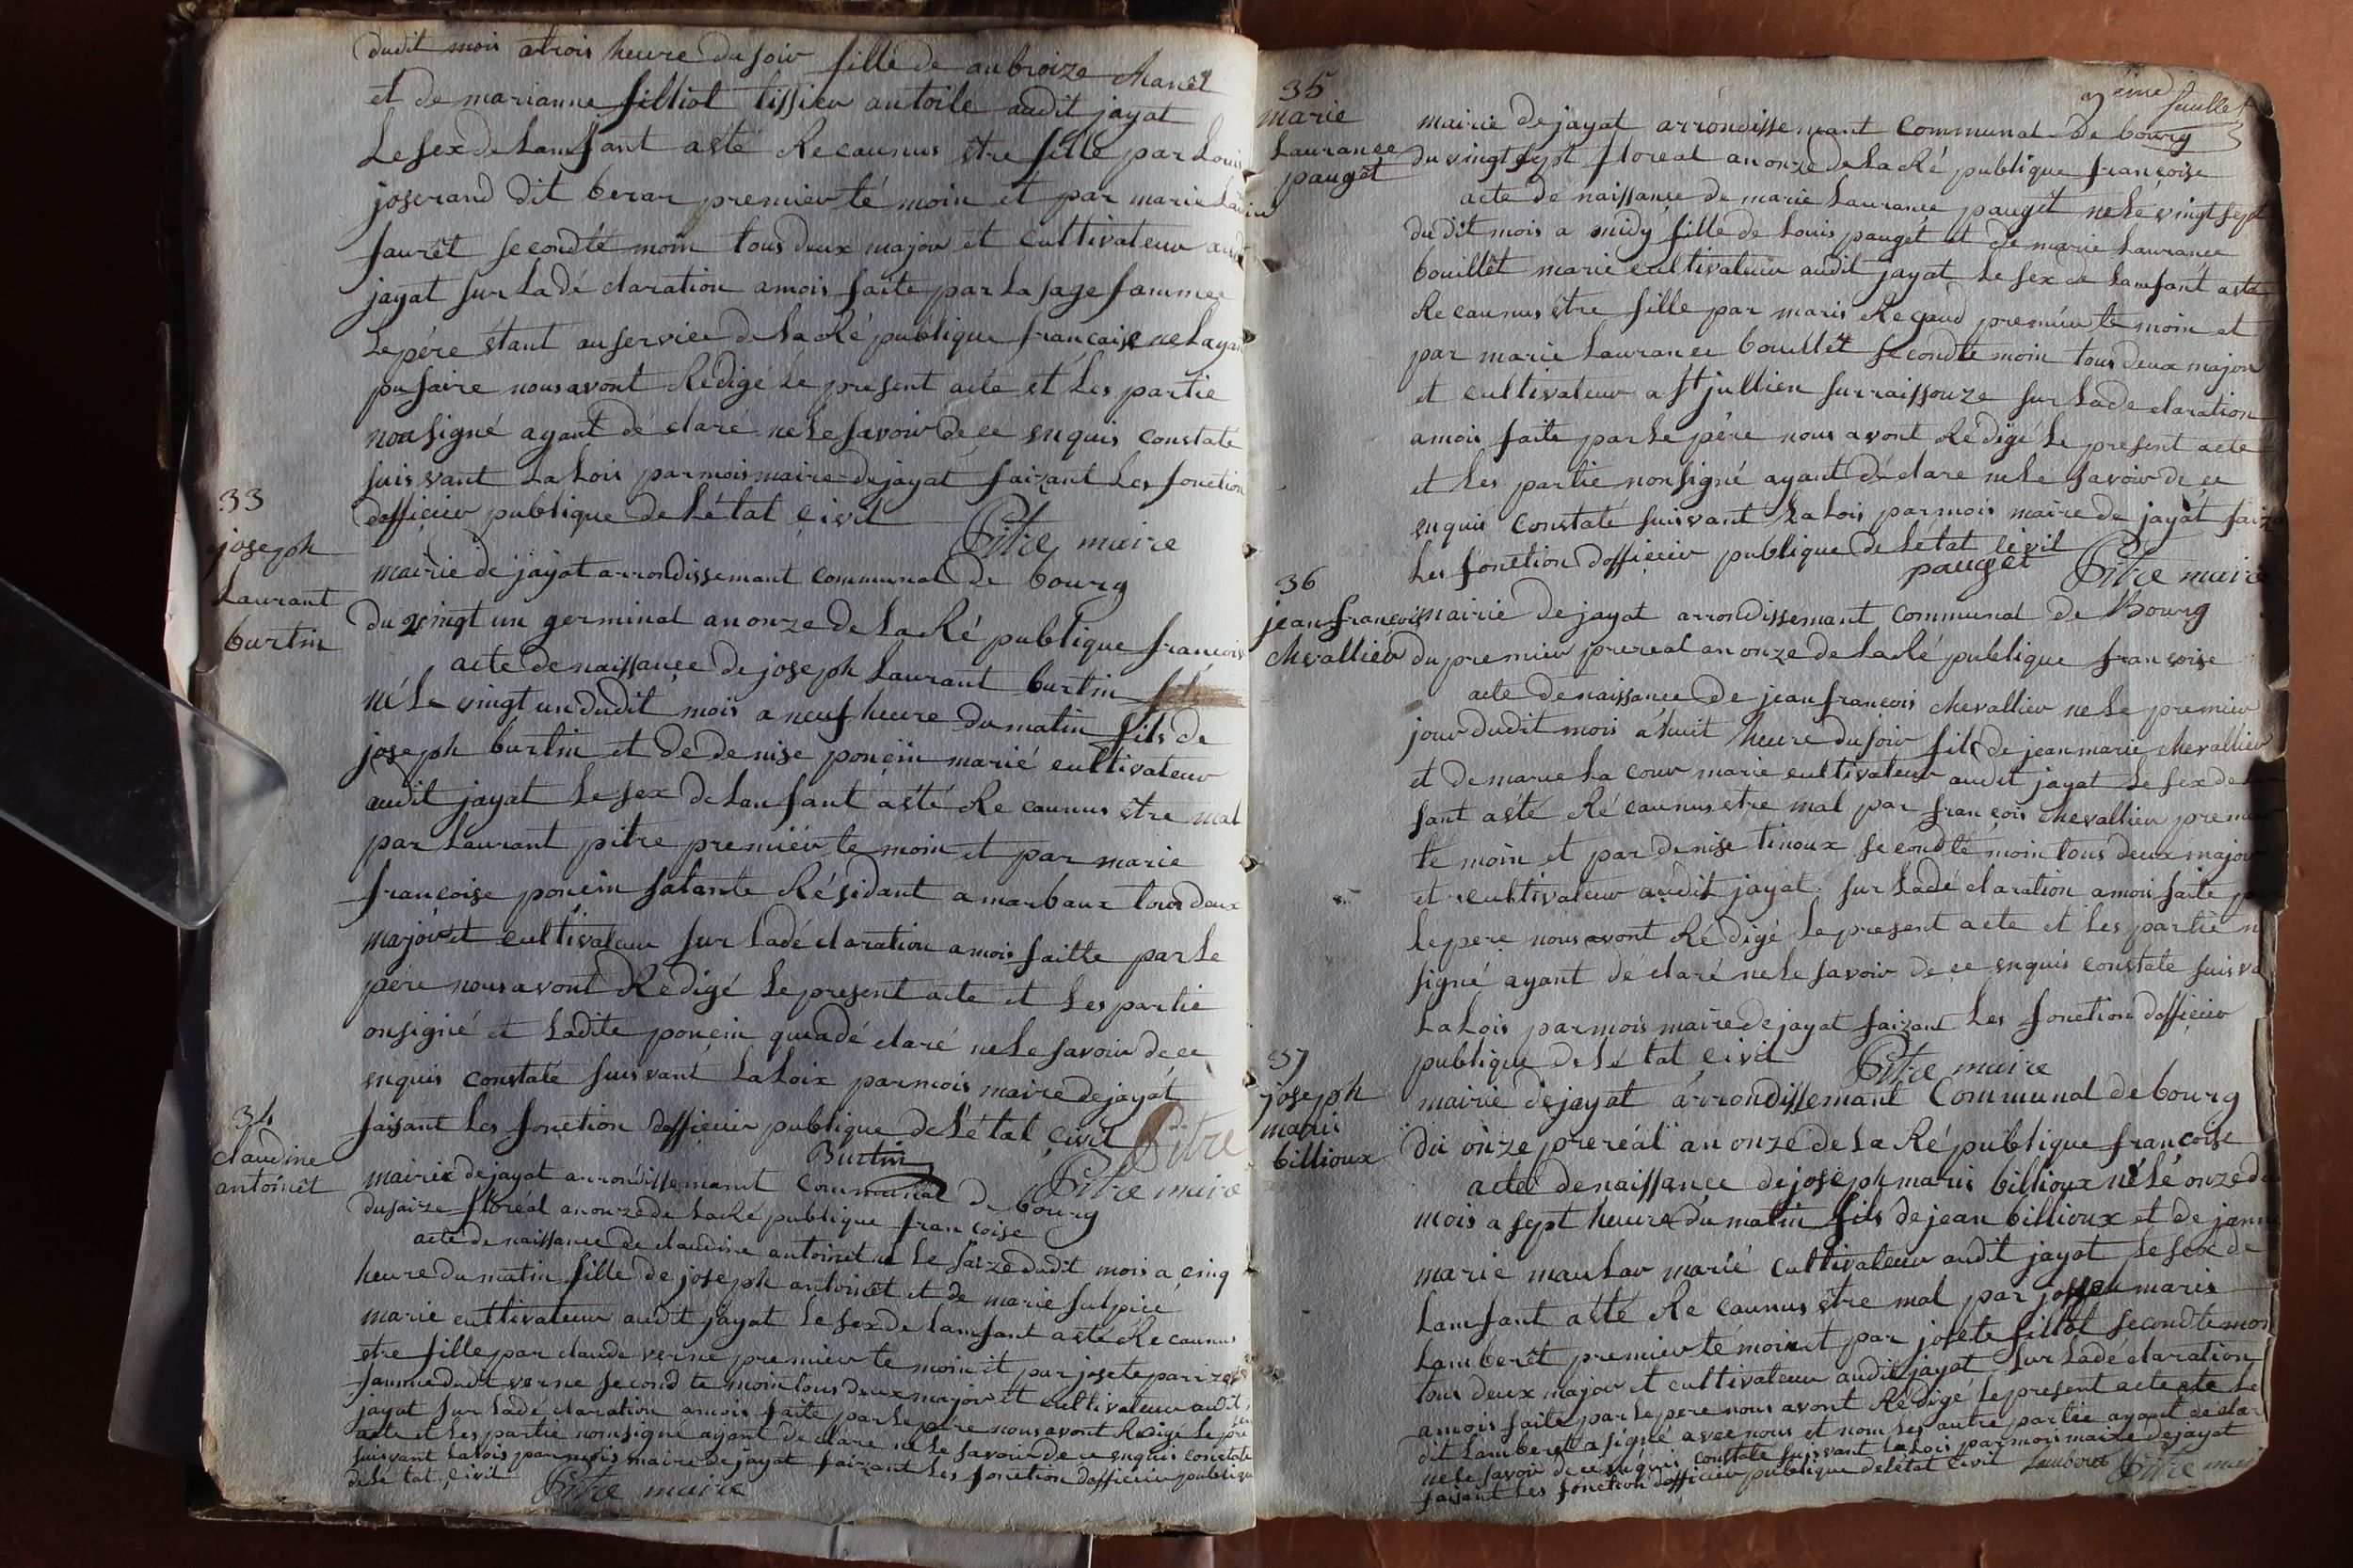 dudit mois atrois heure du soir fille de anbroize chanel
et de marianne filliol tissieu autoile audit jayat
Le sex de Lamfant asté Recaunus être fille par Louis
joserand dit berar premieu té moin et par marie
faurêt secondté moin tous deux majou et cultivateur
jayat sur La dé claration amois faite par La sage fammee
Le père étant au service de La Ré publique française ne Layan
pu faire nous avont Rédigé Le present acte et Les partie
non signé ayant dé claré ne Le savoir de ce enquis constaté
suisvant La Lois par mois maire de jayat faizant Les fonction
dofficieu publique de Létat civil Pitre maire
33
joseph
Laurant
burtin
mairie de jayat arrondissemant communal de bourg
du vingt un germinal an onze de La Ré publique francois
acte de naissance de joseph Laurant burtin
né Le vingt un dudit mois a neuf heure du matin fils de
joseph burtin et de denise poncin marié cultivateur
audit jayat Le sex de Lanfant asté Recaunus être mal
par Laurant pitre premiéu té moin et par marie
françoise poncin satante Résidant a marbaux tous deux
majou et cultivateur sur La dé claration a mois faitte par Le
père nous avont Redigé Le present acte et Les partie
onsigné et Ladite poncin que a dé claré ne Le savoir de ce
enquis constaté suisvant La Loix par mois maire de jayat
faisant Les fonction dofficieu publique de Létat civil Pitre
Burtin Pitre maire
34
claudine
antoinêt
mairie de jayat arrondissemant communal de bourg
du saize floréal an onze de La Ré publique francoise
acte de naissance de claudine antoinet né Le saize dudit mois a cinq
heure du matin fille de joseph antoinêt et de marie sulpice
marie cultivateur audit jayat Le sex de Lamfant asté Recaunus
etre fille par claude verne premieu te moin et par josete parizet
famme dudit verne second te moin tous deux majou et cultivateur audit
jayat sur La dé claration amois faite par Le père nous avont Redigé Le pre
acte et Les partie nonsigné ayant de clare ne Le savoir de ce enquis constate
suisvant La Lois par mois maire de jayat faizant Les fonction dofficieu publique
de Lé tat civil Pitre maire
7 éime feuillet
35
marie
Laurance
paugêt
mairie de jayat arrondissemant communal de bourg
du vingt sept floreal an onze de La Ré publique françoise
acte de naissance de marie Laurance paugêt né Le vingt sept
dudit mois a midy fille de Louis paugêt et de marie Laurance
bouillêt marie cultivateur audit jayat Le sex de Lamfant asté
Recaunus être fille par maris Regaud premiéu te moin et
par marie Laurance bouillêt secondté moin tous deux majou
et cultivateur a St jullien surraissouze sur La de claration
amois faite par Le père nous avont Rédigé Le present acte
et Les partie nonsigné ayant dé clare ne Le savoir de ce
enquis constaté suisvant La Lois par mois maire de jayat faiz
Les fonction dofficieu publique de Létat civil
pauget Pitre maire
36
jean françois
chevalliéu
mairie de jayat arrondissemant communal de Bourg
du premieu prereal an onze de La Ré publique françoise
acte de naissance de jean francois chevallieu né Le premieu
jour dudit mois a huit heure du soir fils de jean marie chevalliéu
et de marie La cour marie cultivateur audit jayat Le sex de L
fant asté Ré caunus etre mal par francois chevallieu premi
té moin et par denise tinoux secondté moin tous deux majou
et cultivateur audit jayat sur La dé claration amois faite p
Le pere nous avont Rédigé Le present acte et Les partie n
signé ayant dé claré ne Le savoir de ce enquis constate suisva
La Lois par mois maire de jayat faizant Les fonction dofficieu
publique de Lé tat civil Pitre maire
37
joseph
maris
billioux
mairie de jayat arrondissemant Communal de bourg
du onze preréal an onze de La Ré publique francoise
acte de naissance de joseph maris billioux né Lé onze du
mois a sept heure du matin fils de jean billioux et de janne
marie maulav marié cultivateur audit jayat Le sex de
Lamfant asté Recaunus être mal par joseph maris
Lamberêt premieu té moin et par josete filliol secondte moi
tous deux majou et cultivateur audit jayat sur La dé claration
amois faite par Le pere nous avont Rédigé Le present acte et Le
dit Lamberet a signé avec nous et nom Les autre partie ayant de clar
ne Le savoir de ce enquis constate suisvant La Lois par mois maire de jayat
faisant Les fonction dofficieu publique de Létat civil Lamberet Pitre mai